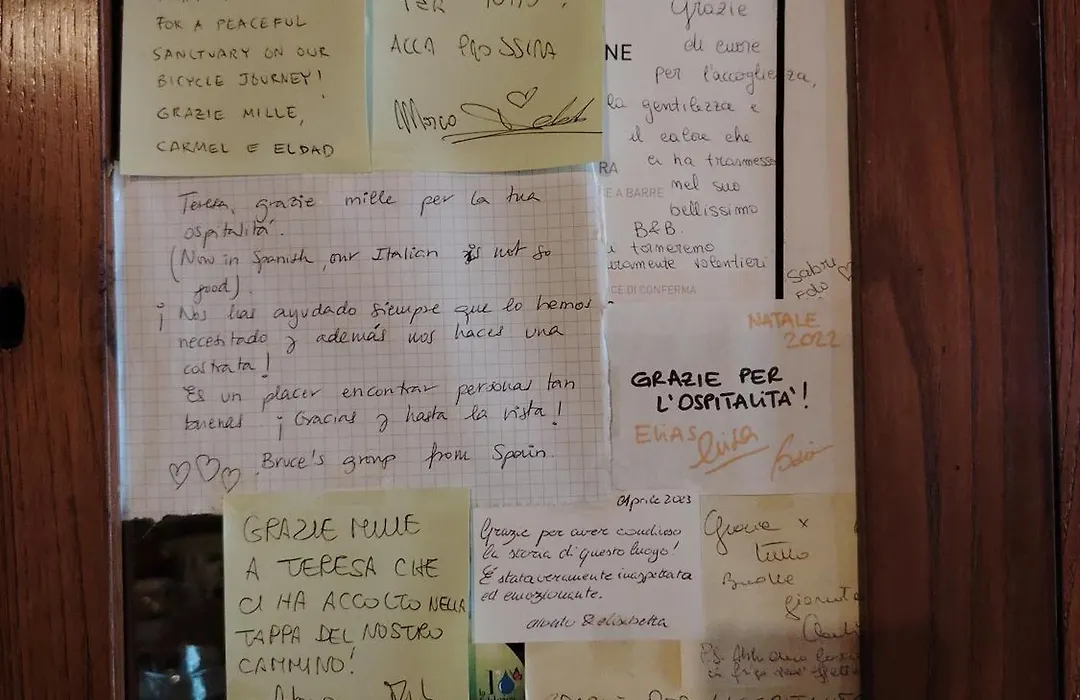 FOR A PEACEFUL
SANCTUARY ON OUR
BICYCLE JOURNEY!
GRAZIE MILLE,
CARMEL E ELDAD
PER TUTTO!
ALLA PROSSIMA
Marco
Grazie
di cuore
per l'accoglienza,
la gentilezza e
il calore che
ci ha trasmesso
nel suo
bellissimo
B&B.
torneremo
volentieri
NE
RA
E A BARRE
CE DI CONFERMA
Sabry
Teresa, grazie mille per la tua
ospitalità.
(Now in Spanish, our Italian is not so
good).
¡Nos has ayudado siempre que lo hemos
necesitado y además nos haces una
costrata!
Es un placer encontrar personas tan
buenas ¡Gracias y hasta la vista!
Bruce's group from Spain.
NATALE
2022
GRAZIE PER
L'OSPITALITA'!
ELIAS
Luisa
GRAZIE MILLE
A TERESA CHE
CI HA ACCOLTO NELLA
TAPPA DEL NOSTRO
CAMMINO!
Aprile 2023
Grazie per aver condiviso
la storia di questo luogo!
È stata veramente inaspettata
ed emozionante.
& elisabetta
Grazie x
tutto
Buone
giornate